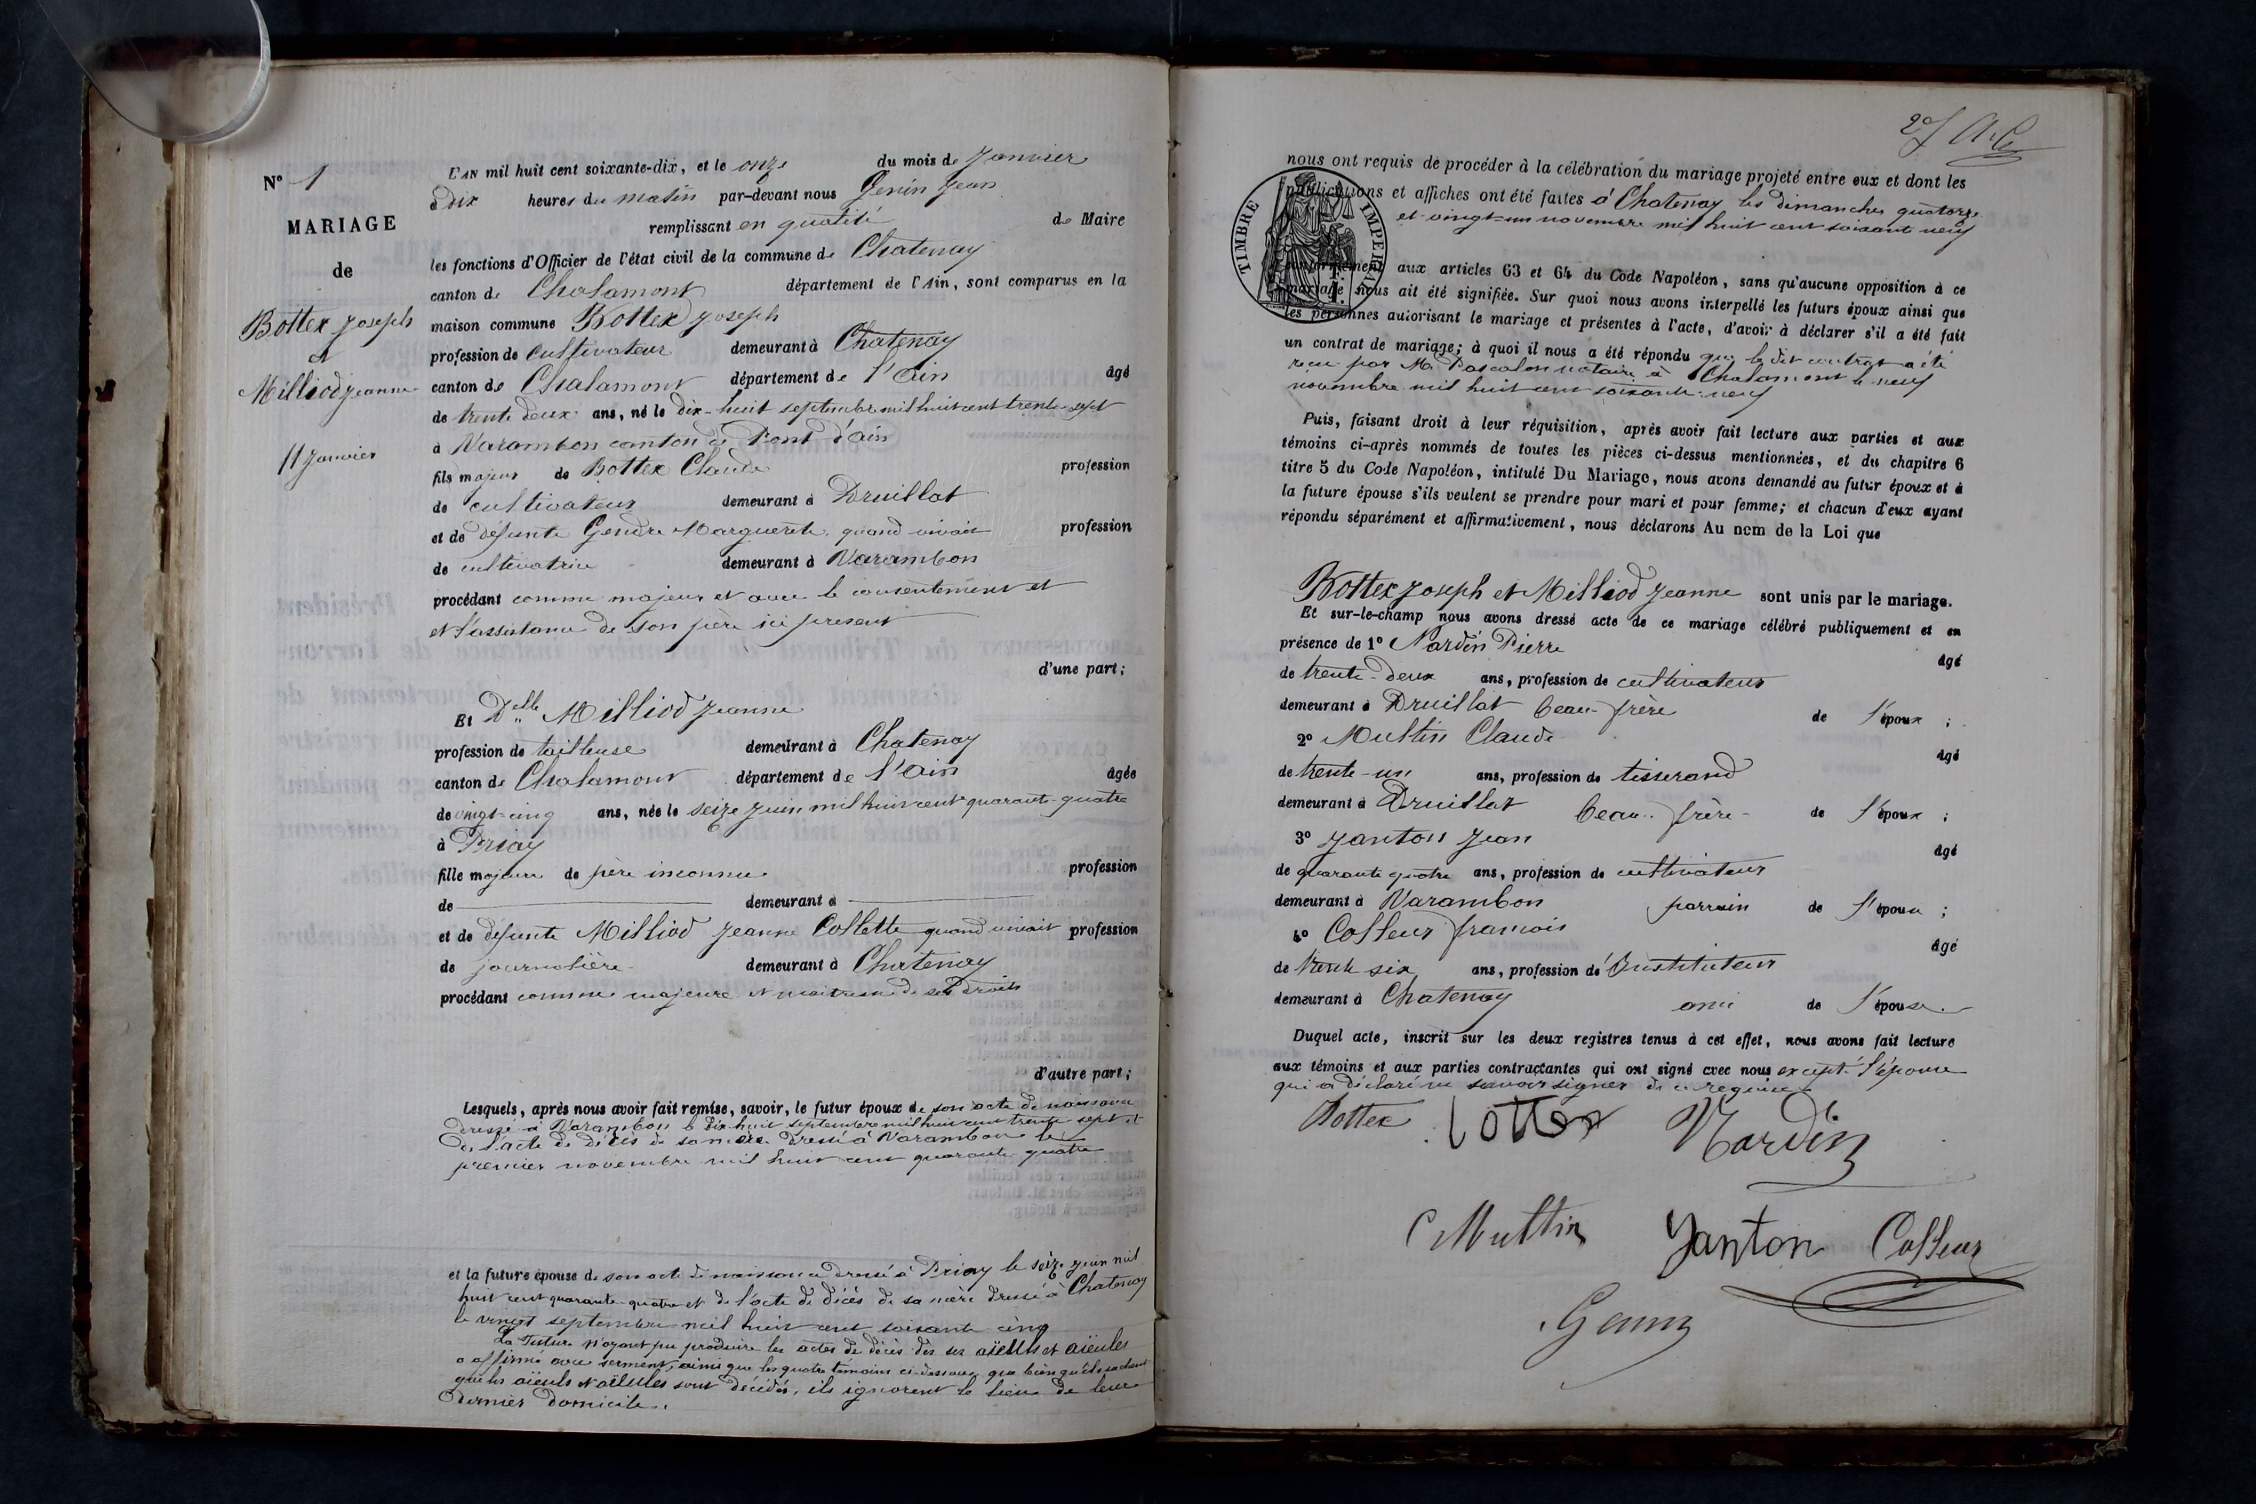 N° 1
MARIAGE
de
Bottex Joseph
et
Milliod Jeanne
11 Janvier
L'AN mil huit cent soixante-dix, et le onze du mois de Janvier
à dix heures du matin par-devant nous Genin Jean
remplissant en qualité de Maire
les fonctions d'Officier de l'état civil de la commune de Chatenay
canton de Chalamont département de l'Ain, sont comparus en la
maison commune Bottex Joseph
profession de cultivateur demeurant à Chatenay
canton de Chalamont département de l'Ain âgé
de trente deux ans, né le dix-huit septembre mil huit cent trente sept
à Varambon canton de Pont d'ain
fils majeur de Bottex Claude profession
de cultivateur demeurant à Druillat
et de défunte Gendre Marguerite quand vivait profession
de cultivatrice demeurant à Varambon
procédant comme majeur et avec le consentement et
et l'assistance de son père ici présent
d'une part;
Et Delle Milliod Jeanne
profession de tailleuse demeurant à Chatenay
canton de Chalamont département de l'Ain âgée
de vingt-cinq ans, née le seize Juin mil huit cent quarante-quatre
à Priay
fille majeure de père inconnu profession
de demeurant à
et de défunte Milliod Jeanne Collette quand vivait profession
de journalière demeurant à Chatenay
procédant comme majeure et maitresse de ses droits
d'autre part;
Lesquels, après nous avoir fait remise, savoir, le futur époux de son acte de naissance
dressé à Varambon le dix huit septembre mil huit cent trente sept et
de l'acte de décès de sa mère dressé à Varambon le
premier novembre mil huit cent quarante quatre
et la future épouse de son acte de naissance dressé à Priay le seize Juin mil
huit cent quarante-quatre et de l'acte de décès de sa mère dressé à Chatenay
le vingt septembre mil huit cent soixante cinq
La Future n'ayant pu produire les actes de décès des ses aïeuls et aïeules
a affirmé avec serment, ainsi que les quatre témoins ci-dessous, que bien qu'ils sachent
que les aïeuls et aïeules sont décédés, ils ignorent le lieu de leur
dernier domicile.
nous ont requis de procéder à la célébration du mariage projeté entre eux et dont les
publications et affiches ont été faites à Chatenay les dimanches quatorze
et vingt-un novembre mil huit cent soixante neuf
TIMBRE IMPERIAL
conformément aux articles 63 et 64 du Code Napoléon, sans qu'aucune opposition à ce
mariage nous ait été signifiée. Sur quoi nous avons interpellé les futurs époux ainsi que
les personnes autorisant le mariage et présentes à l'acte, d'avoir à déclarer s'il a été fait
un contrat de mariage; à quoi il nous a été répondu que le dit contrat a été
reçu par Me Pascalon notaire à Chalamont le neuf
novembre mil huit cent soixante-neuf
Puis, faisant droit à leur réquisition, après avoir fait lecture aux parties et aux
témoins ci-après nommés de toutes les pièces ci-dessus mentionnées, et du chapitre 6
titre 5 du Code Napoléon, intitulé Du Mariage, nous avons demandé au futur époux et à
la future épouse s'ils veulent se prendre pour mari et pour femme; et chacun d'eux ayant
répondu séparément et affirmativement, nous déclarons Au nom de la Loi que
Bottex Joseph et Milliod Jeanne sont unis par le mariage.
Et sur-le-champ nous avons dressé acte de ce mariage célébré publiquement et en
présence de 1° Nardin Pierre âgé
de trente-deux ans, profession de cultivateur
demeurant à Druillat beau-frère de l'époux ;
2° Multin Claude âgé
de trente-un ans, profession de tisserand
demeurant à Druillat beau-frère de l'époux ;
3° Janton Jean âgé
de quarante quatre ans, profession de cultivateur
demeurant à Varambon parrain de l'époux ;
4° Colleur francois âgé
de trente six ans, profession d'Instituteur
demeurant à Chatenay ami de l'épouse.
Duquel acte, inscrit sur les deux registres tenus à cet effet, nous avons fait lecture
aux témoins et aux parties contractantes qui ont signé avec nous excepté l'épouse
qui a déclaré ne savoir signer de ce requise
Bottex Bottex Nardin
C Multin Janton Colleur
Genin